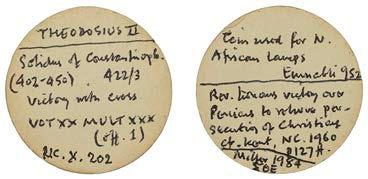 THEODOSIUS II
Solidus of Constantinople.
(402-450) 422/3
Victory with cross
VOT XX MULT XXX
(off. 1)
RIC. X. 202
Coin used for N.
African Lamps
952
Rev. honours victory over
Persians to relieve per-
secution of Christians
cf. Kent, NC. 1960
P127 ff.
1984